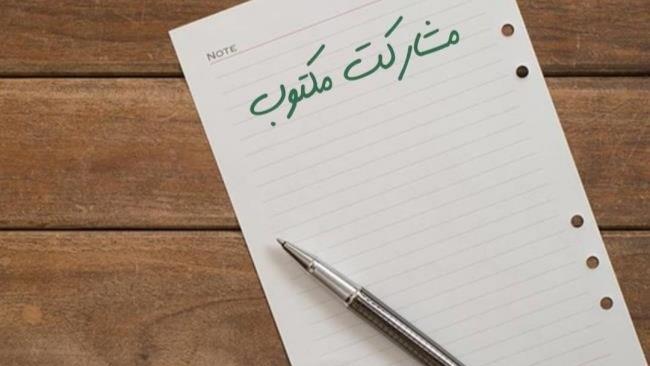 NOTE
مشارکت مکتوب